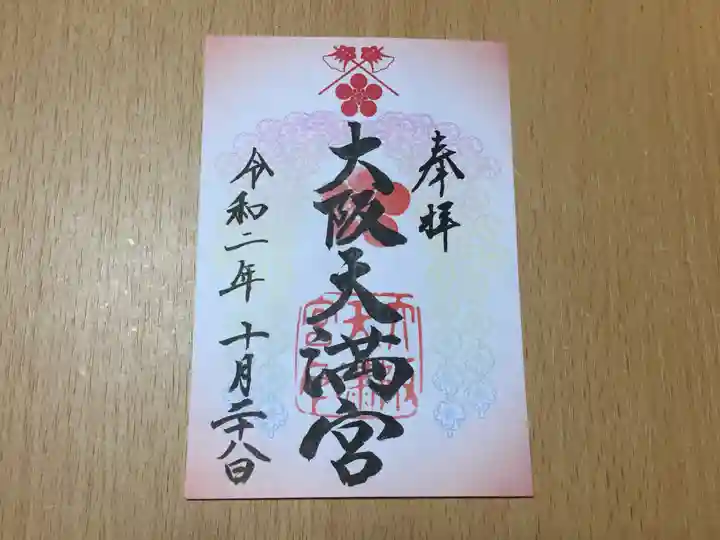 奉拝
大阪天満宮
令和二年 十月二十八日